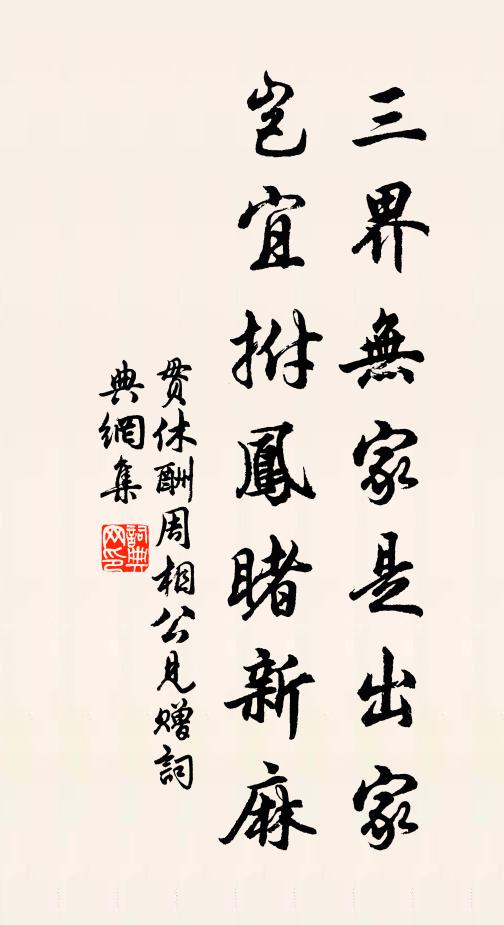 三界無家是出家
豈宜拊鳳睹新麻
貫休酬周相公見贈詞
典網集
詞典
网印